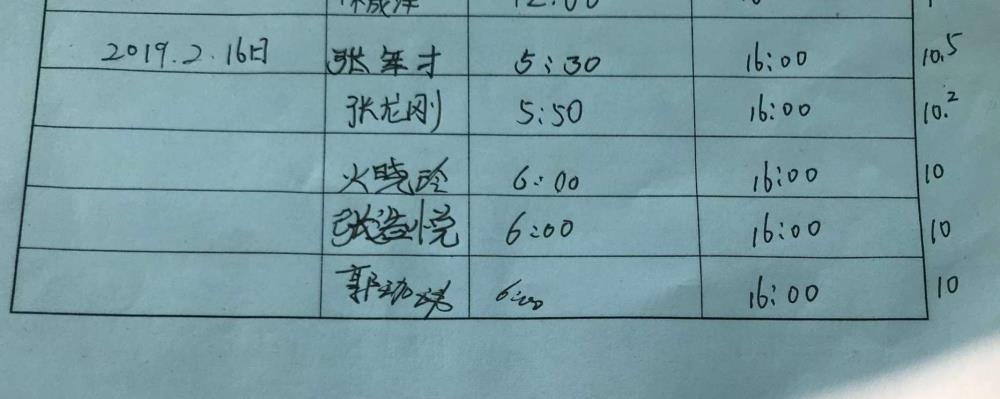 12:00
2019.2.16日 张年才 5:30 16:00 10.5
张龙刚 5:50 16:00 10.2
火晓玲 6:00 16:00 10
张浩悦 6:00 16:00 10
郭 6:00 16:00 10